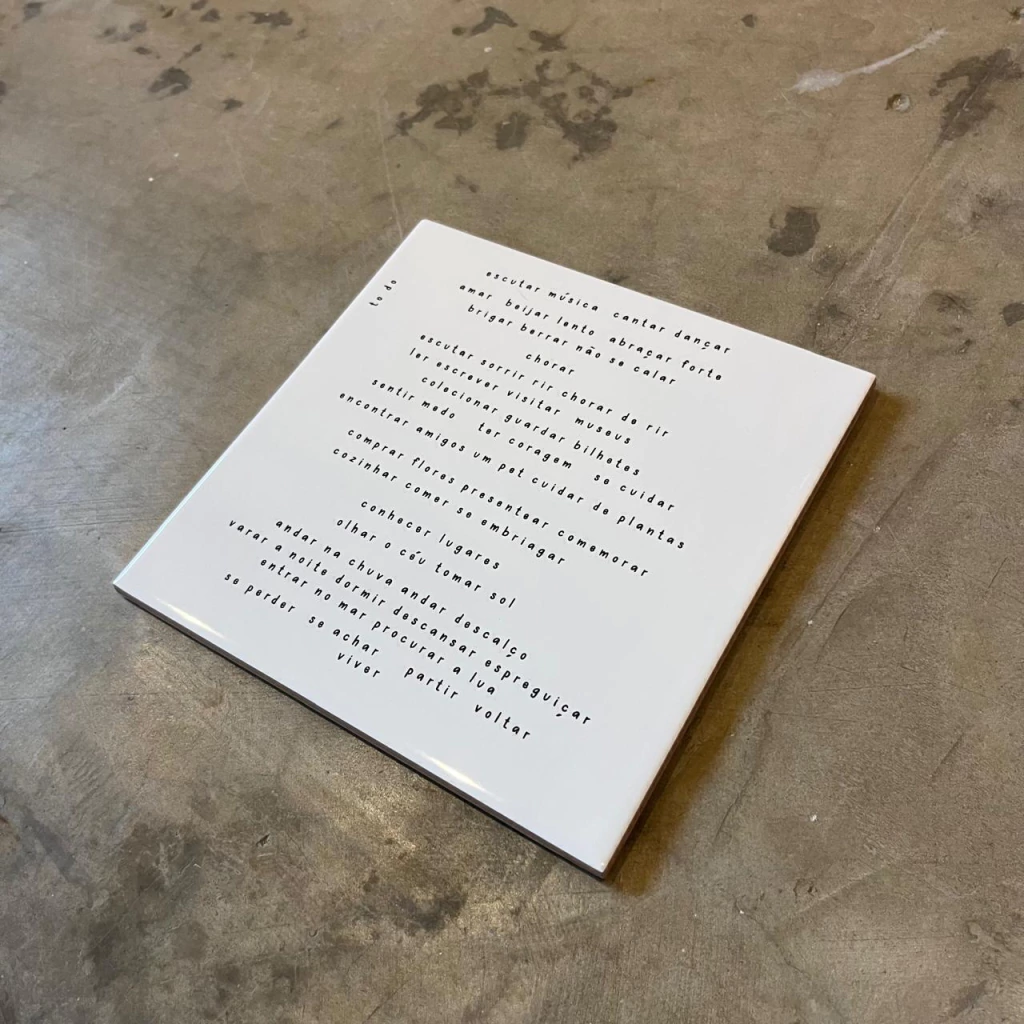 to do
escutar música cantar dançar
amar beijar lento abraçar forte
brigar berrar não se calar
chorar
escutar sorrir rir chorar de rir
ler escrever visitar museus
colecionar guardar bilhetes
sentir medo ter coragem se cuidar
encontrar amigos um pet cuidar de plantas
comprar flores presentear comemorar
cozinhar comer se embriagar
conhecer lugares
olhar o céu tomar sol
andar na chuva andar descalço
varar a noite dormir descansar espreguiçar
entrar no mar procurar a lua
se perder se achar partir voltar
viver